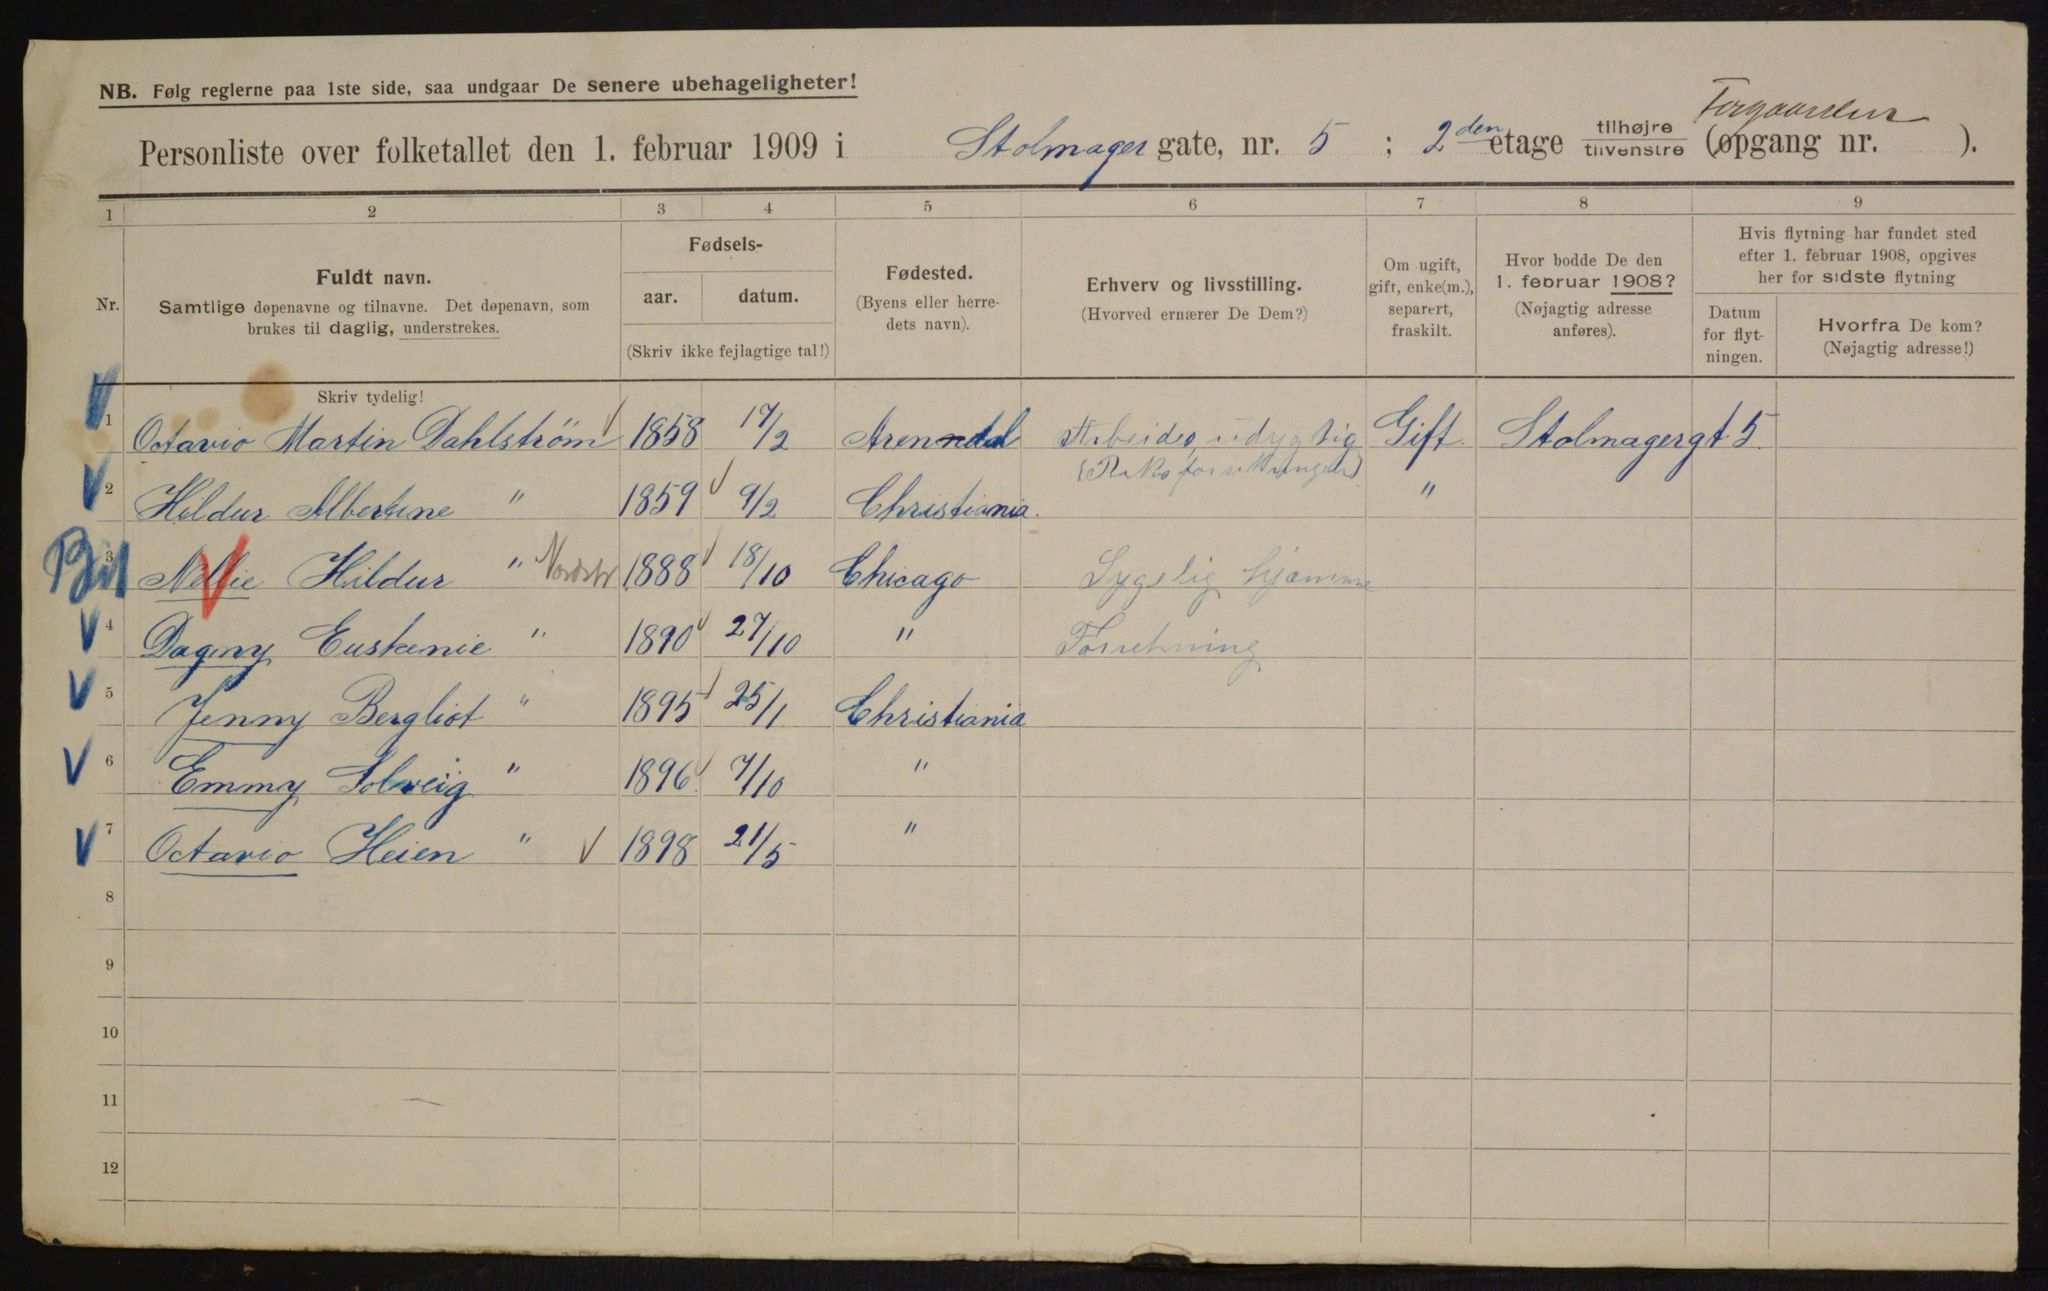 NB. Følg reglerne paa 1ste side, saa undgaar De senere ubehageligheter!
Personliste over folketallet den 1. februar 1909 i Stolmager gate, nr. 5 ; 2den etage tilhøjre tilvenstre (opgang nr. ).
1 2 3 4 5 6 7 8 9
Nr.
Fuldt navn.
Samtlige døpenavne og tilnavne. Det døpenavn, som
brukes til daglig, understrekes.
Skriv tydelig!
Fødsels-
aar. datum.
(Skriv ikke fejlagtige tal!)
Fødested.
(Byens eller herre-
dets navn).
Erhverv og livsstilling.
(Hvorved ernærer De Dem?)
Om ugift,
gift, enke(m.),
separert,
fraskilt.
Hvor bodde De den
1. februar 1908?
(Nøjagtig adresse
anføres).
Hvis flytning har fundet sted
efter 1. februar 1908, opgives
her for sidste flytning
Datum
for flyt-
ningen.
Hvorfra De kom?
(Nøjagtig adresse!)
1 Octavio Martin Dahlstrøm 1858 17/2 Arendal Arbeides udygtig Gift. Stolmagergt 5
2 Hildur Albertine " 1859 9/2 Christiania. "
3 Nellie Hildur " Nordstr 1888 18/10 Chicago Sygelig hjemme
4 Dagny Eustanie " 1890 27/10 " Forretning
5 Jenny Bergliot " 1895 25/1 Christiania
6 Emmy Solveig " 1896 7/10 "
7 Octavio Heien " 1898 21/5 "
8
9
10
11
12